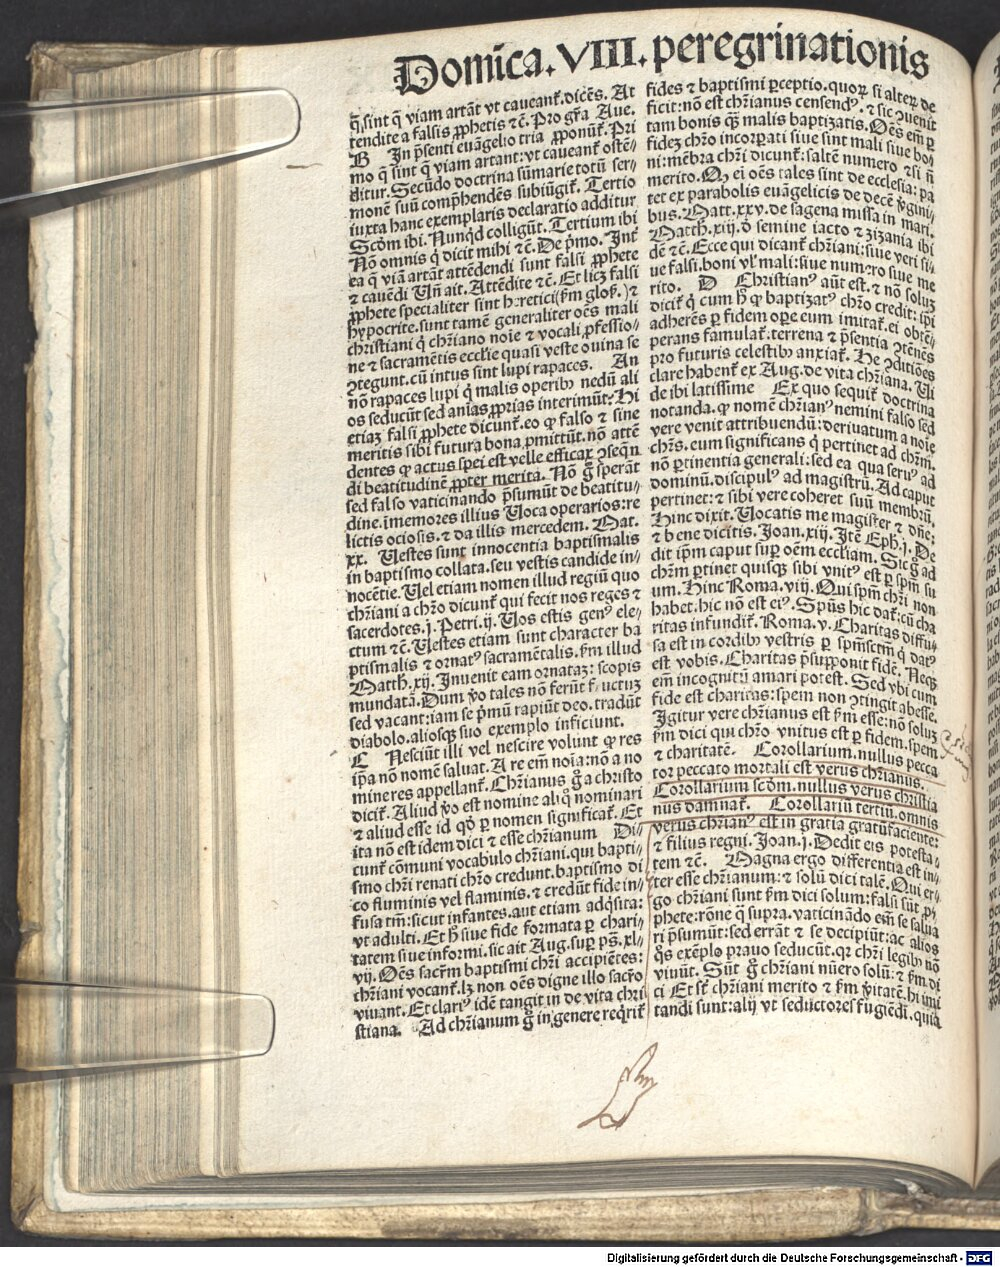 Domīca. VIII. peregrinationis
q̄ sint q̄ viam artāt vt caueant᷑. dicēs. At
tendite a falsis ꝓphetis ⁊c̄. Pro gr̄a Aue.
B In p̄senti euāgelio tria ꝓponūt᷑. Pri
mo q̄ sint q̄ viam artant: vt caueant᷑ ostē-
ditur. Secūdo doctrina sūmarie totū ser-
monē suū comp̄hendēs subiūgit᷑. Tertio
iuxta hanc exemplaris declaratio additur
Scḋm ibi. Nunqd colligūt. Tertium ibi
Nō omnis q̄ dicit mihi ⁊c̄. De p̄mo. Int᷑
ea q̄ viā artāt attēdendi sunt falsi ꝓphete
⁊ cauēdi Vn̄ ait. Attēdite ⁊c̄. Et licꝫ falsi
ꝓphete specialiter sint heretici (ẜm glos̄.) ⁊
hypocrite. sunt tamē generaliter oēs mali
christiani q̄ chr̄iano noīe ⁊ vocali ꝓfessio-
ne ⁊ sacramētis ecclīe quasi veste ouina se
ꝯtegunt. cū intus sint lupi rapaces. An
nō rapaces lupi q̄ malis operibꝰ nedū ali
os seducūt sed aniās ꝓprias interimūt: Hi
etiaꝫ falsi ꝓphete dicunt᷑. eo ꝙ falso ⁊ sine
meritis sibi futura bona ꝓmittūt. nō attē
dentes ꝙ actus spei est velle efficax ꝯseqn̄
di beatitudinē ꝓpter merita. Nō g̊ sperāt
sed falso vaticinando p̄sumūt de beatitu-
dine. īmemores illius Uoca operarios: re
lictis ociosis. ⁊ da illis mercedem. Mat.
xx. Uestes sunt innocentia baptismalis
in baptismo collata. seu vestis candide in-
nocētie. Uel etiam nomen illud regiū quo
chr̄iani a chr̄o dicunt᷑ qui fecit nos reges ⁊
sacerdotes. j. Petri. ij. Uos estis genꝰ ele-
ctum ⁊c̄. Uestes etiam sunt character ba
ptismalis ⁊ ornatꝰ sacramētalis. ẜm illud
Matth. xij. Inuenit eam ornataꝫ: scopis
mundatā. Dum v̊o tales nō ferūt fructuꝫ
sed vacant: iam se p̄mū rapiūt deo. tradūt
diabolo. aliosqꝫ suo exemplo inficiunt.
C Nesciūt illi vel nescire volunt ꝙ res
ip̄a nō nomē saluat. A re em̄ noīa: nō a no
mine res appellant᷑. Chr̄ianus g̊ a christo
dicit᷑. Aliud v̊o est nomine aliq̊ nominari
⁊ aliud esse id qd̊ ꝑ nomen significat᷑. Et
ita nō est idem dici ⁊ esse chr̄ianum Di-
cunt᷑ cōmuni vocabulo chr̄iani. qui bapti-
smo chr̄i renati chr̄o credunt. baptismo di
co fluminis vel flaminis. ⁊ credūt fide in-
fusa tm̄: sicut infantes. aut etiam adq̄sita:
vt adulti. Et h̊ siue fide formata ꝑ chari-
tatem siue informi. sic ait Aug. suꝑ ps̄. xl-
vij. Oēs sacr̄m baptismi chr̄i accipiētes:
chr̄iani vocant᷑. lꝫ non oēs digne illo sacr̄o
viuant. Et clariꝰ idē tangit in de vita chri
stiana. Ad chr̄ianum g̊ in genere reqrit᷑
fides ⁊ baptismi ꝑceptio. quoꝝ si alteꝝ de
ficit: nō est chr̄ianus censendꝰ. ⁊ sic ꝯuenit
tam bonis qꝫ malis baptizatis. Oēs em̄ ꝑ
fideꝫ chr̄o incorꝑati siue sint mali siue bo-
ni: mēbra chr̄i dicunt᷑: saltē numero ⁊si n̄
merito. Qꝫ ei oēs tales sint de ecclesia: pa
tet ex parabolis euāgelicis de decē v̊gini-
bus. Matt. xxv. de sagena missa in mari.
Matth. xiij. d̊ semine iacto ⁊ zizania ibi
dē ⁊c̄. Ecce qui dicant᷑ chr̄iani: siue veri si-
ue falsi. boni vl̓ mali: siue numero siue me
rito. D Christianꝰ aūt est. ⁊ nō soluꝫ
dicit᷑ q̄ cum h̊ ꝙ baptizatꝰ chr̄o credit: ip̄i
adherēs ꝑ fidem oꝑe eum imitat᷑. ei obtē-
perans famulat᷑. terrena ⁊ p̄sentia ꝯtēnēs
pro futuris celestibꝰ anxiat᷑. He ꝯditiōes
clare habent᷑ ex Aug. de vita chr̄iana. Ui
de ibi latissime Ex quo sequit᷑ doctrina
notanda. ꝙ nomē chr̄ianꝰ nemini falso sed
vere venit attribuendū: deriuatum a noīe
chr̄s. eum significans q̄ pertinet ad chr̄m.
nō ꝑtinentia generali: sed ea qua seruꝰ ad
dominū. discipulꝰ ad magistrū. Ad caput
pertinet: ⁊ sibi vere coheret suū membrū.
Hinc dixit. Uocatis me magister ⁊ dn̄e:
⁊ bene dicitis. Joan. xiij. Itē Eph. j. De
dit ip̄m caput suꝑ oēm eccliam. Sic g̊ ad
chr̄m ꝑtinet quisqꝫ sibi vnitꝰ est ꝑ spm̄ su
um. Hinc Roma. viij. Qui spm̄ chr̄i non
habet. hic nō est eiꝰ. Spūs hic dat᷑: cū cha
ritas infundit᷑. Roma. v. Charitas diffu-
sa est in cordibꝰ vestris ꝑ spm̄sctm̄ q̄ datꝰ
est vobis. Charitas p̄supponit fidē. Neqꝫ
em̄ incognitū amari potest. Sed vbi cum
fide est charitas: spem non ꝯtingit abesse.
Igitur vere chr̄ianus est ẜm esse: nō soluꝫ
ẜm dici qui chr̄o vnitus est ꝑ fidem. spem
⁊ charitatē. Corollarium. nullus pecca
tor peccato mortali est verus chr̄ianus.
Corollarium scḋm. nullus verus christia
nus damnat᷑. Corollariū tertiū. omnis
verus chr̄ianꝰ est in gratia gratūfaciente:
⁊ filius regni. Joan. j. Dedit eis potesta-
tem ⁊c̄. Magna ergo differentia est in-
ter esse chr̄ianum: ⁊ solū dici talē. Qui er-
go chr̄iani sunt ẜm dici solum: falsi sūt ꝓ-
phete: rōne q̄ supra. vaticinādo em̄ se salua
ri p̄sumūt: sed errāt ⁊ se decipiūt: ac alios
q̊s exēplo prauo seducūt. qr chr̄i legibꝰ nō
viuūt. Sūt g̊ chr̄iani nūero solū: ⁊ ẜm di
ci Et st᷑ chr̄iani merito ⁊ ẜm v̊itatē. hi imi
tandi sunt: alij vt seductores fugiēdi. quia
Digitalisierung gefördert durch die Deutsche Forschungsgemeinschaft - DFG